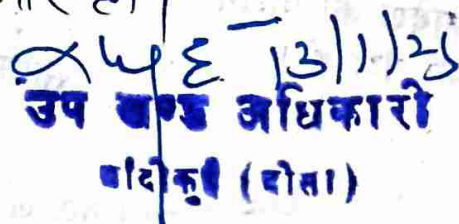 13/1/25
उप खण्ड अधिकारी
बांदीकुई (दौसा)